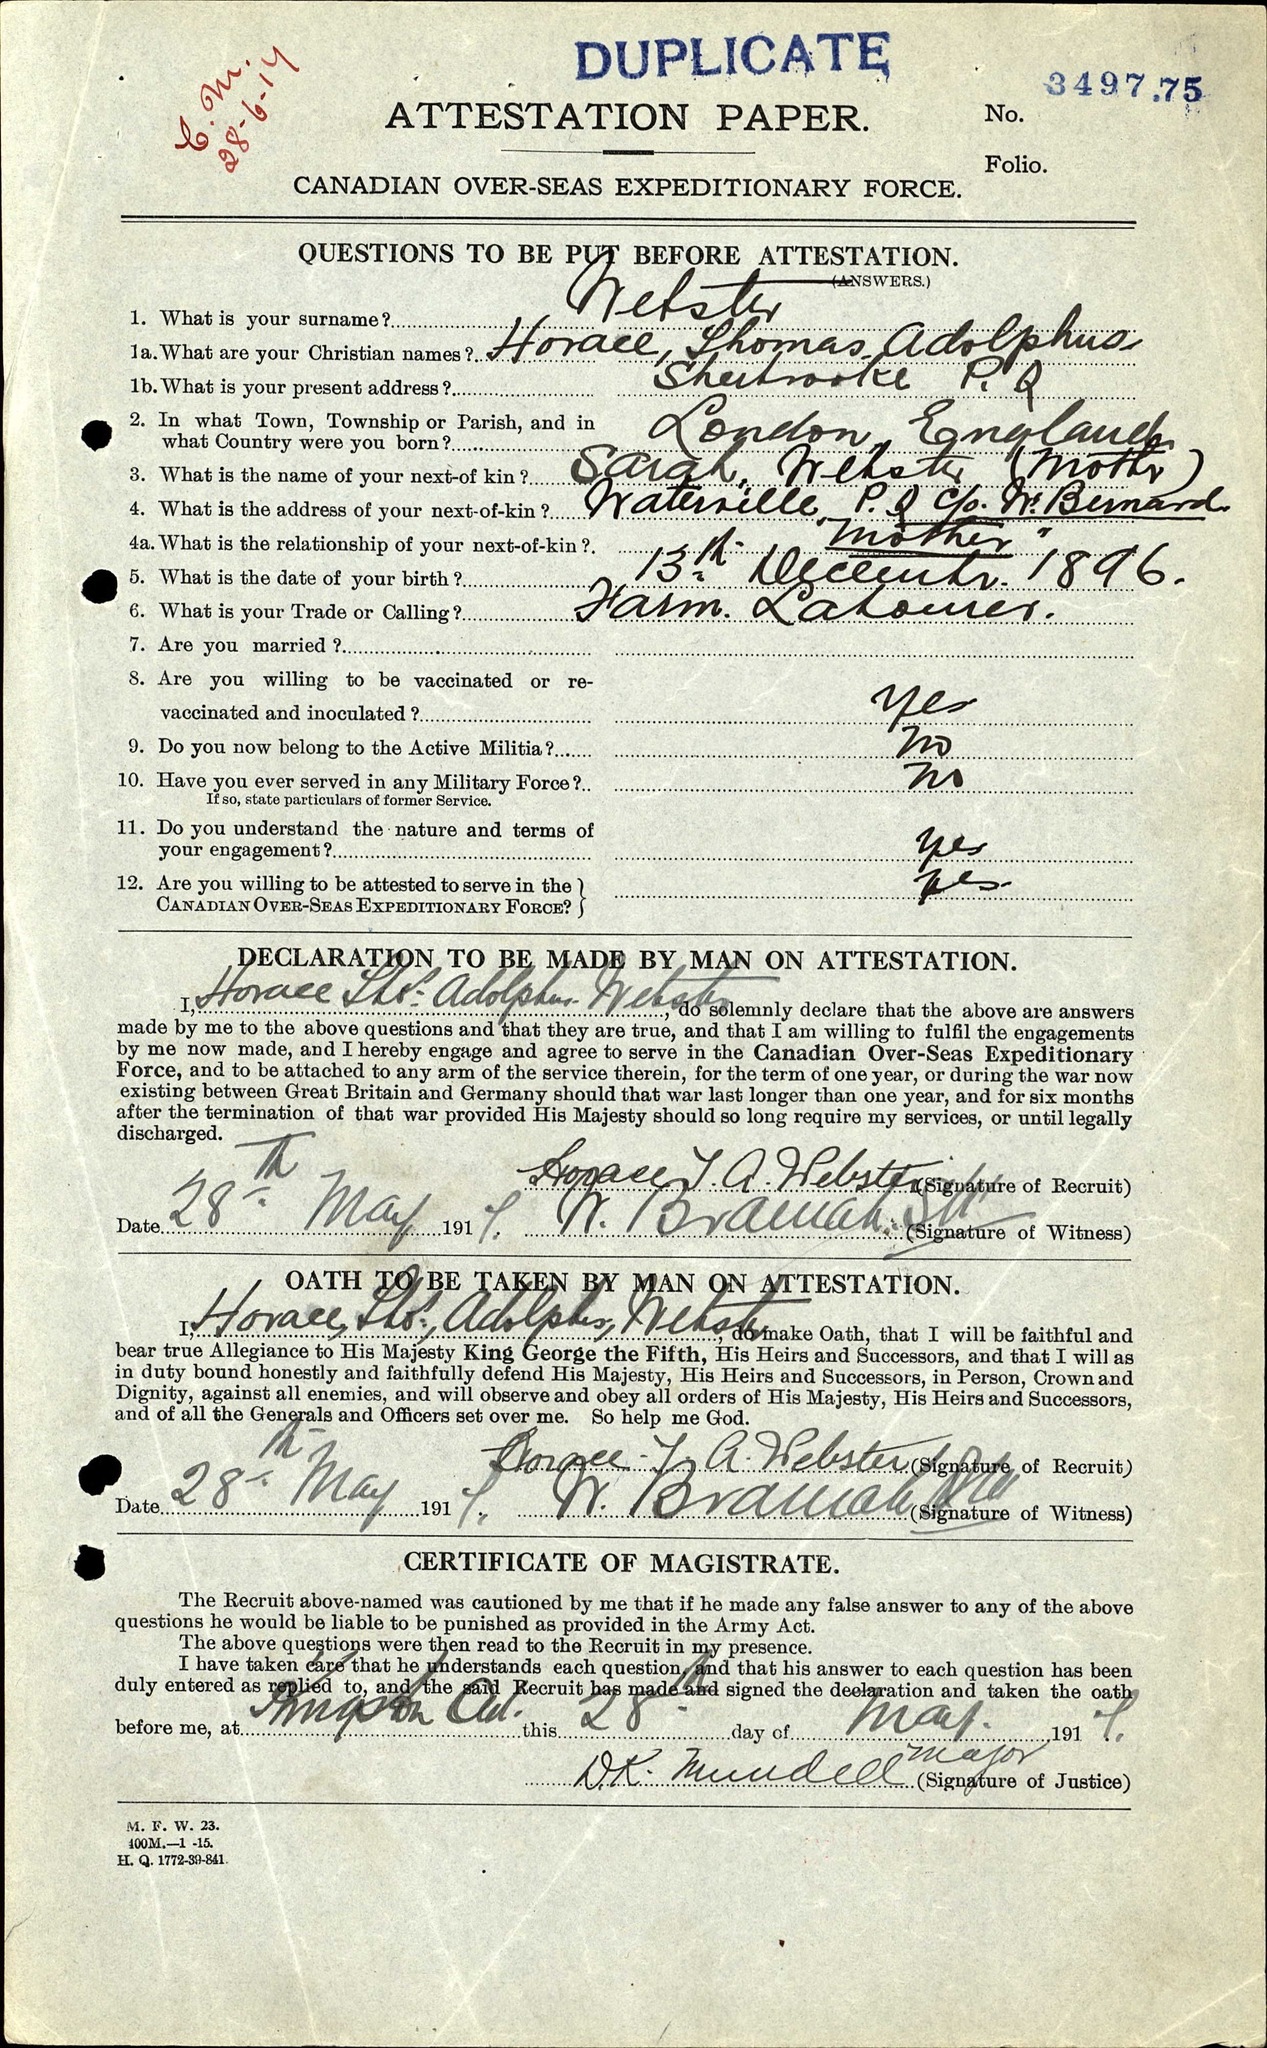 DUPLICATE
3497.75
C. M.
28-6-17
ATTESTATION PAPER.
No.
Folio.
CANADIAN OVER-SEAS EXPEDITIONARY FORCE.
QUESTIONS TO BE PUT BEFORE ATTESTATION.
(ANSWERS.)
1. What is your surname? Webster
1a. What are your Christian names? Horace, Thomas Adolphus
1b. What is your present address? Sherbrooke P. Q
2. In what Town, Township or Parish, and in
what Country were you born? London, England
3. What is the name of your next-of kin? Sarah, Webster (Mother)
4. What is the address of your next-of-kin? Waterville, P. Q c/o. W. Bernard
4a. What is the relationship of your next-of-kin? "Mother"
5. What is the date of your birth? 13th December. 1896.
6. What is your Trade or Calling? Farm. Labourer.
7. Are you married?
8. Are you willing to be vaccinated or re-
vaccinated and inoculated? Yes
9. Do you now belong to the Active Militia? No
10. Have you ever served in any Military Force? No
If so, state particulars of former Service.
11. Do you understand the nature and terms of
your engagement? Yes
12. Are you willing to be attested to serve in the
CANADIAN OVER-SEAS EXPEDITIONARY FORCE? } Yes.
DECLARATION TO BE MADE BY MAN ON ATTESTATION.
I, Horace Thos. Adolphus Webster, do solemnly declare that the above are answers
made by me to the above questions and that they are true, and that I am willing to fulfil the engagements
by me now made, and I hereby engage and agree to serve in the Canadian Over-Seas Expeditionary
Force, and to be attached to any arm of the service therein, for the term of one year, or during the war now
existing between Great Britain and Germany should that war last longer than one year, and for six months
after the termination of that war provided His Majesty should so long require my services, or until legally
discharged.
Horace T. A. Webster (Signature of Recruit)
Date 28th May 1917. W. Bramah (Signature of Witness)
OATH TO BE TAKEN BY MAN ON ATTESTATION.
I, Horace, Thos., Adolphus, Webster, do make Oath, that I will be faithful and
bear true Allegiance to His Majesty King George the Fifth, His Heirs and Successors, and that I will as
in duty bound honestly and faithfully defend His Majesty, His Heirs and Successors, in Person, Crown and
Dignity, against all enemies, and will observe and obey all orders of His Majesty, His Heirs and Successors,
and of all the Generals and Officers set over me. So help me God.
Horace T. A. Webster (Signature of Recruit)
Date 28th May 1917. W. Bramah (Signature of Witness)
CERTIFICATE OF MAGISTRATE.
The Recruit above-named was cautioned by me that if he made any false answer to any of the above
questions he would be liable to be punished as provided in the Army Act.
The above questions were then read to the Recruit in my presence.
I have taken care that he understands each question, and that his answer to each question has been
duly entered as replied to, and the said Recruit has made and signed the declaration and taken the oath
before me, at Kingston Ont. this 28th day of May. 1917.
D.K. Mundell Major (Signature of Justice)
M. F. W. 23.
400M.—1 -15.
H. Q. 1772-39-841.